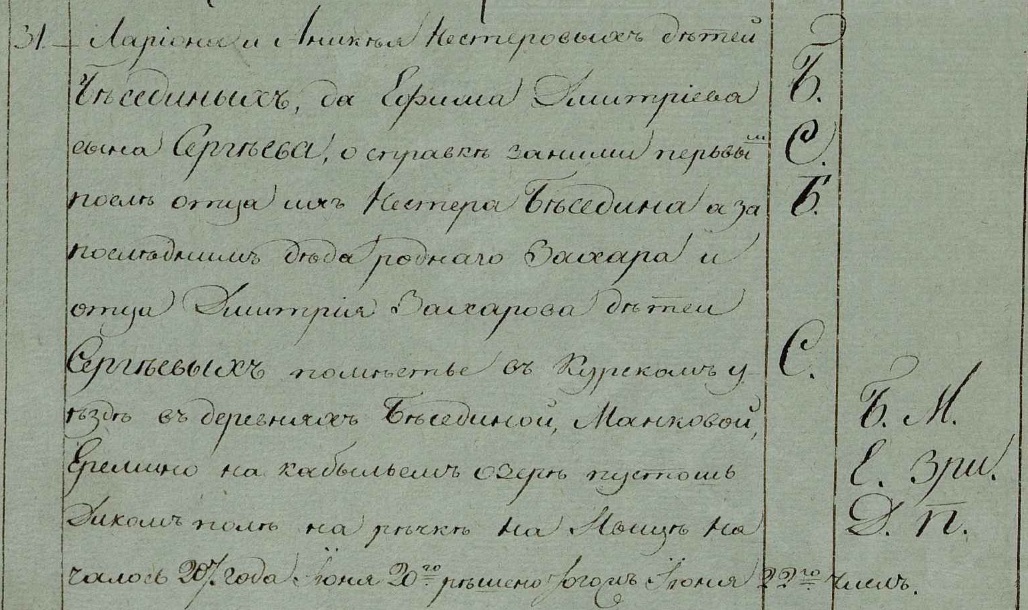 31. Лариона и Аникѣя Нестеровыхъ дѣтей
Бѣсединыхъ, да Ефима Дмитріева Б.
сына Сергѣева, о справкѣ заними первымъ С.
послѣ отца ихъ Нестера Бѣседина а за Б.
послѣднимъ дѣда роднаго Захара и
отца Дмитрія Захарова дѣтей
Сергѣевыхъ помѣстье въ Курскомъ у С.
ѣздѣ въ деревняхъ Бѣсединой, Манковой, Б. М.
Еремино на кабыльемъ озерѣ пустошь Е. зри.
Дикомъ полѣ на рѣчкѣ на Млицѣ на Д. п.
чалось 207. года Іюня 20го рѣшено тогожъ Іюня 22го числ.